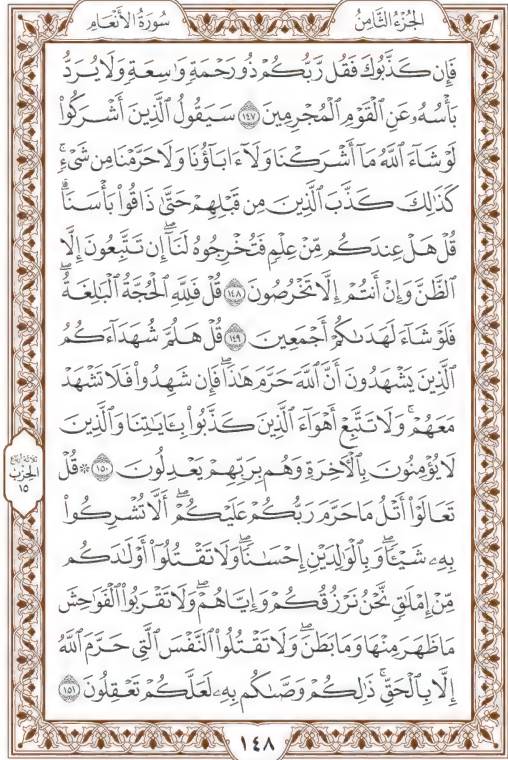 سُورَةُ الأَنْعَامِ
الجُزْءُ الثَّامِنُ
فَإِن كَذَّبُوكَ فَقُل رَّبُّكُمْ ذُو رَحْمَةٍ وَٰسِعَةٍ وَلَا يُرَدُّ
بَأْسُهُۥ عَنِ ٱلْقَوْمِ ٱلْمُجْرِمِينَ ١٤٧ سَيَقُولُ ٱلَّذِينَ أَشْرَكُوا۟
لَوْ شَآءَ ٱللَّهُ مَآ أَشْرَكْنَا وَلَآ ءَابَآؤُنَا وَلَا حَرَّمْنَا مِن شَىْءٍۚ
كَذَٰلِكَ كَذَّبَ ٱلَّذِينَ مِن قَبْلِهِمْ حَتَّىٰ ذَاقُوا۟ بَأْسَنَاۗ
قُلْ هَلْ عِندَكُم مِّنْ عِلْمٍ فَتُخْرِجُوهُ لَنَآۖ إِن تَتَّبِعُونَ إِلَّا
ٱلظَّنَّ وَإِنْ أَنتُمْ إِلَّا تَخْرُصُونَ ١٤٨ قُلْ فَلِلَّهِ ٱلْحُجَّةُ ٱلْبَٰلِغَةُۖ
فَلَوْ شَآءَ لَهَدَىٰكُمْ أَجْمَعِينَ ١٤٩ قُلْ هَلُمَّ شُهَدَآءَكُمُ
ٱلَّذِينَ يَشْهَدُونَ أَنَّ ٱللَّهَ حَرَّمَ هَٰذَاۖ فَإِن شَهِدُوا۟ فَلَا تَشْهَدْ
مَعَهُمْۚ وَلَا تَتَّبِعْ أَهْوَآءَ ٱلَّذِينَ كَذَّبُوا۟ بِـَٔايَٰتِنَا وَٱلَّذِينَ
لَا يُؤْمِنُونَ بِٱلْـَٔاخِرَةِ وَهُم بِرَبِّهِمْ يَعْدِلُونَ ١٥٠ ۞ قُلْ
ثلاثة أرباع
الحزب
١٥
تَعَالَوْا۟ أَتْلُ مَا حَرَّمَ رَبُّكُمْ عَلَيْكُمْۖ أَلَّا تُشْرِكُوا۟
بِهِۦ شَيْـًٔاۖ وَبِٱلْوَٰلِدَيْنِ إِحْسَٰنًاۖ وَلَا تَقْتُلُوٓا۟ أَوْلَٰدَكُم
مِّنْ إِمْلَٰقٍۖ نَّحْنُ نَرْزُقُكُمْ وَإِيَّاهُمْۖ وَلَا تَقْرَبُوا۟ ٱلْفَوَٰحِشَ
مَا ظَهَرَ مِنْهَا وَمَا بَطَنَۖ وَلَا تَقْتُلُوا۟ ٱلنَّفْسَ ٱلَّتِى حَرَّمَ ٱللَّهُ
إِلَّا بِٱلْحَقِّۚ ذَٰلِكُمْ وَصَّىٰكُم بِهِۦ لَعَلَّكُمْ تَعْقِلُونَ ١٥١
١٤٨